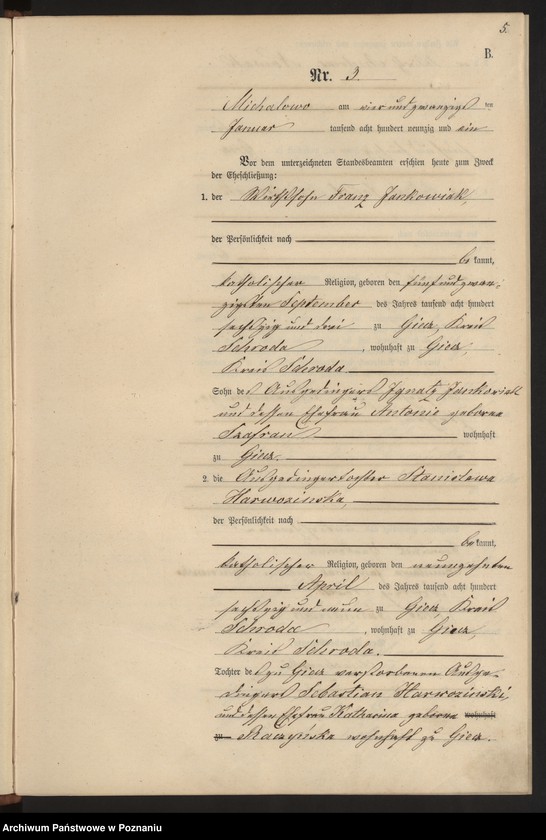 5.
B.
Nr. 3.
Michalowo am vier und zwanzigsten
Januar tausend acht hundert neunzig und ein
Vor dem unterzeichneten Standesbeamten erschien heute zum Zweck
der Eheschließung:
1. der Wirthssohn Franz Jankowiak,
der Persönlichkeit nach
bekannt,
katholischer Religion, geboren den fünf und zwan-
zigsten September des Jahres tausend acht hundert
sechszig und drei zu Giecz, Kreis
Schroda, wohnhaft zu Giecz,
Kreis Schroda
Sohn des Ausgedingers Ignatz Jankowiak
und dessen Ehefrau Antonie geborene
Szafran wohnhaft
zu Giecz.
2. die Ausgedingertochter Stanislawa
Harwozinska,
der Persönlichkeit nach
bekannt,
katholischer Religion, geboren den neunzehnten
April des Jahres tausend acht hundert
sechszig und neun zu Giecz, Kreis
Schroda, wohnhaft zu Giecz,
Kreis Schroda.
Tochter des zu Giecz verstorbenen Ausge-
dingers Sebastian Harwozinski,
und dessen Ehefrau Katharina geborene wohnhaft
zu Raczyńska wohnhaft zu Giecz.
Archiwum Państwowe w Poznaniu